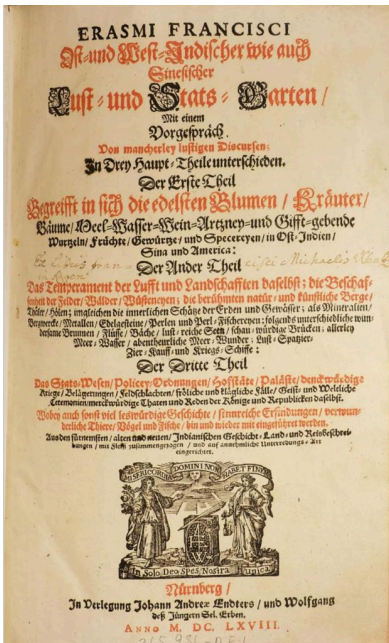 ERASMI FRANCISCI
Ost-und West-Indischer wie auch
Sinesischer
Lust- und Stats-Garten/
Mit einem
Vorgespräch
Von mancherley lustigen Discursen;
In Drey Haupt-Theile unterschieden.
Der Erste Theil
Begreifft in sich die edelsten Blumen/ Kräuter/
Bäume/ Meel-Wasser-Wein-Artzney-und Gifft-gebende
Wurtzeln/ Früchte/ Gewürtze/ und Specereyen/ in Ost-Indien/
Sina und America:
Der Ander Theil
Das Temperament der Lufft und Landschafften daselbst; die Beschaf-
fenheit der Felder/ Wälder/ Wüsteneyen; die berühmten natür- und künstliche Berge/
Thäler/ Hölen; imgleichen die innerlichen Schätze der Erden und Gewässer; als Mineralien/
Bergwercke/ Metallen/ Edelgesteine/ Perlen und Perl-Fischereyen; folgends unterschiedliche wun-
dersame Brunnen/ Flüsse/ Bäche/ lust-reiche Seen/ schau-würdige Brücken; allerley
Meer-Wasser/ abentheurliche Meer-Wunder; Lust-Spatzier-
Zier-Kauff-und Kriegs-Schiffe:
Der Dritte Theil
Das Stats-Wesen/ Policey-Ordnungen/ Hofstäte/ Paläste/ denckwürdige
Kriege/ Belägerungen/ Feldschlachten/ fröliche und klägliche Fälle/ Geist- und Weltliche
Ceremonien/ merckwürdige Thaten und Reden der Könige und Republicken daselbst.
Wobey auch sonst viel leswürdige Geschichte/ sinnreiche Erfindungen/ verwun-
derliche Thiere/ Vögel und Fische/ hin und wieder mit eingeführet werden.
Aus den fürnemsten/ alten und neuen/ Indianischen Geschicht-Land-und Reisbeschrei-
bungen/ mit Fleiß zusammengezogen/ und auf annehmliche Unterredungs-Art
eingerichtet.
MISERICORDIAE DOMINI NON HABET FINEM
In Solo Deo Spes Nostra Unica
Nürnberg/
In Verlegung Johann Andreæ Endters/ und Wolfgang
deß Jüngern Sel. Erben.
ANNO M. DC. LXVIII.